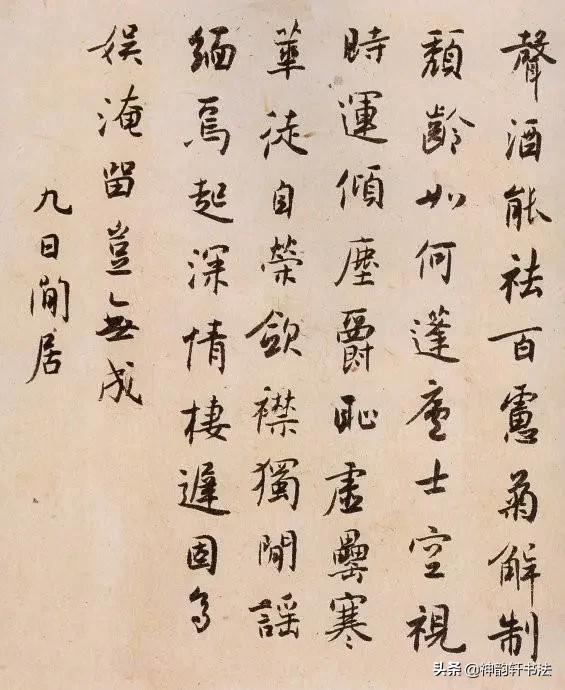 聲酒能祛百慮菊解制
頹齡如何蓬廬士空視
時運傾塵爵恥虛罍寒
華徒自榮斂襟獨閒謠
緬焉起深情棲遲固多
娛淹留豈無成
九日閒居
头条 @神韵轩书法